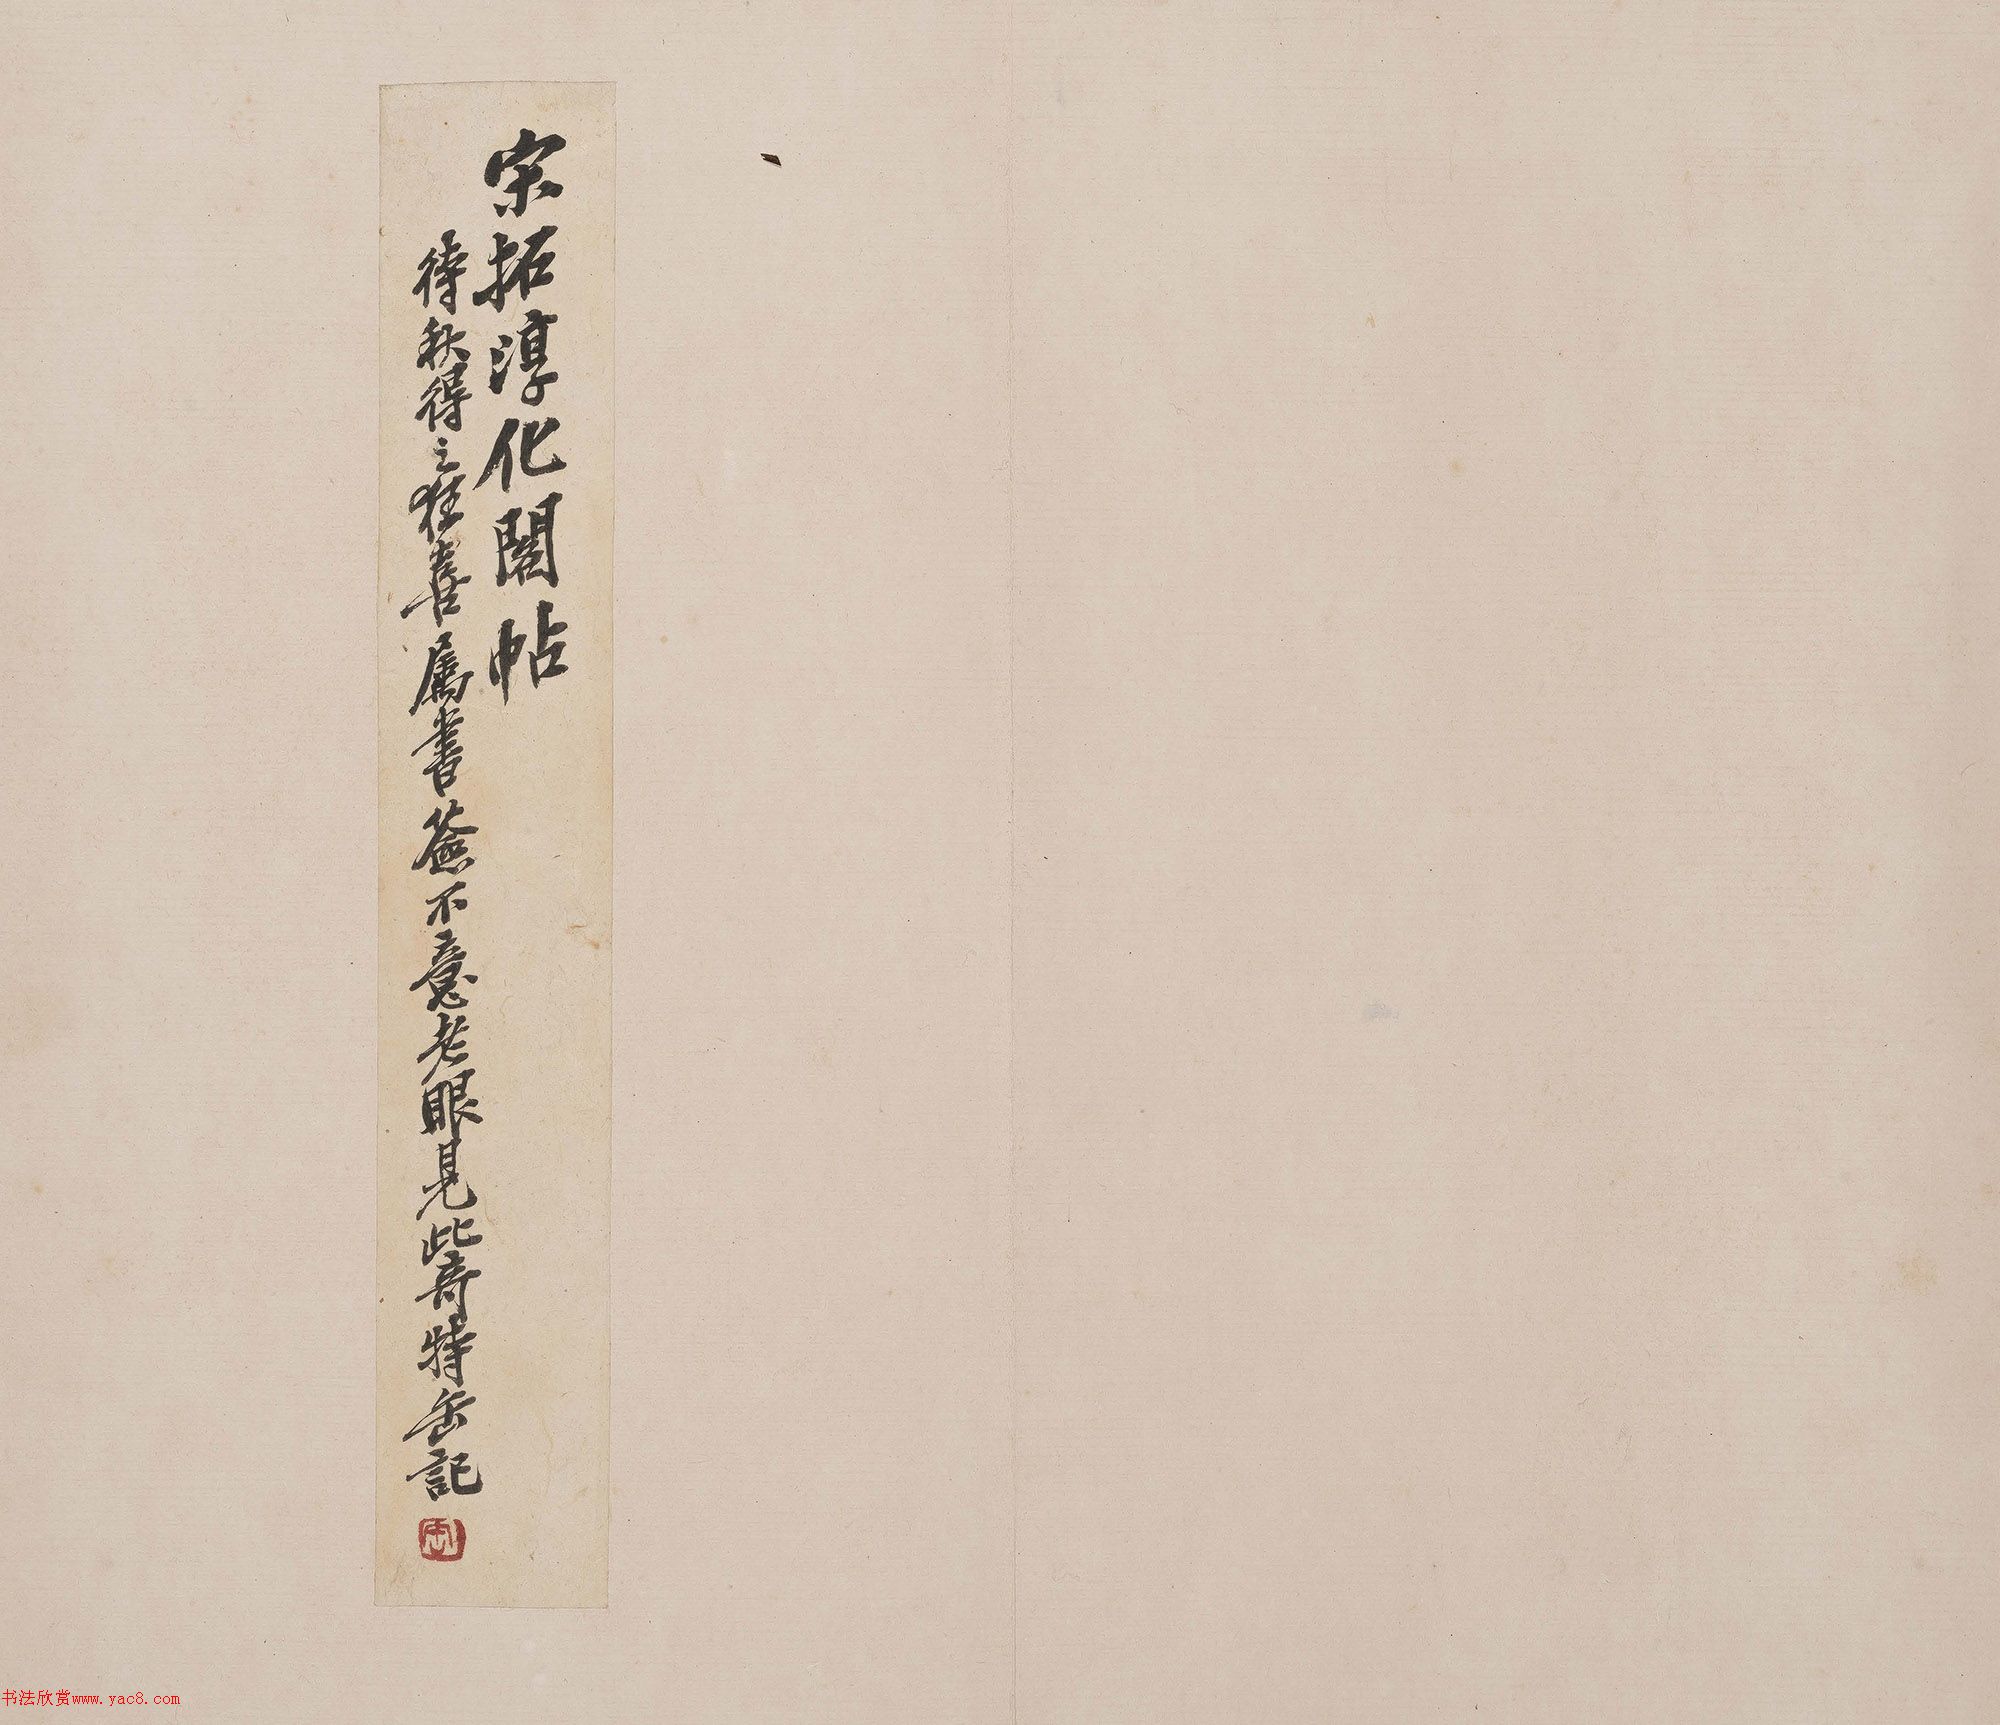 宋拓淳化閣帖
待秋得之狂喜属書簽不意老眼見此奇特缶記
书法欣赏www.yac8.com